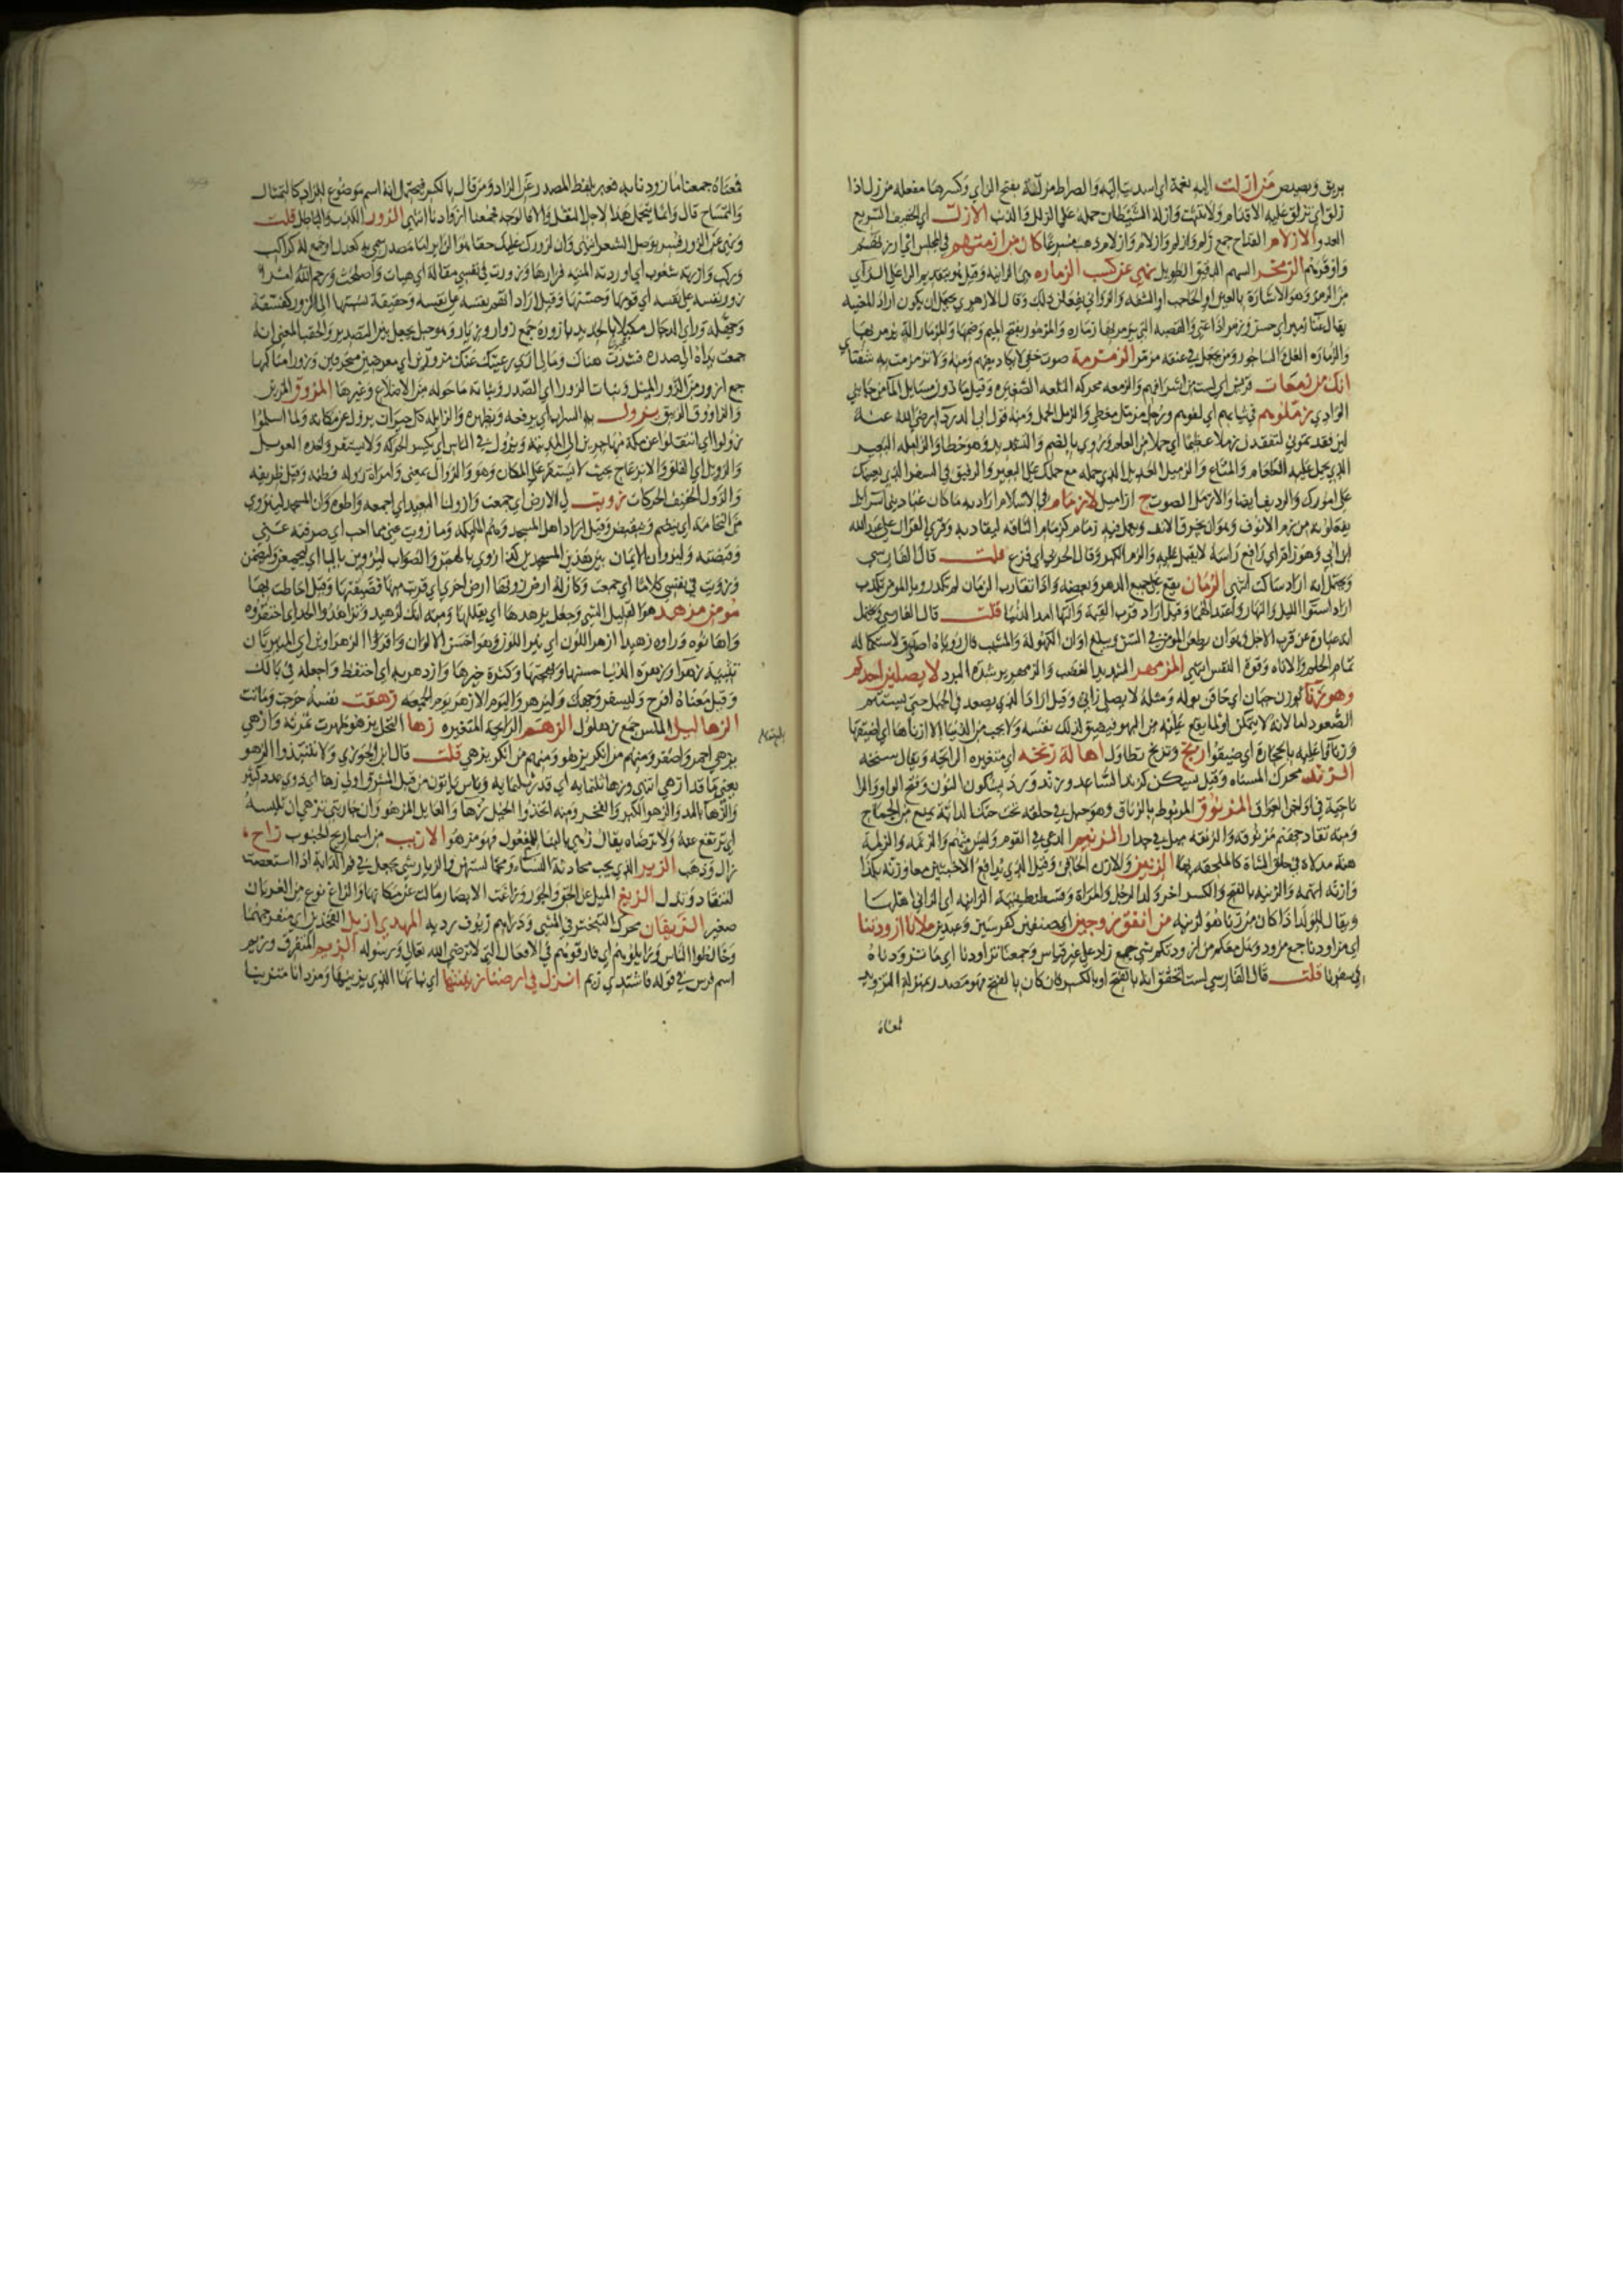 بريق وبصيص من ازلت اليه نعمة اي اسديت اليه والصراط مزلقة بفتح الزاي وكسرها مفعلة من زل اذا
زلق اي تزلق عليه الاقدام ولا تثبت وازله الشيطان حمله على الزلل والذئب الازل اي الخفيف السريع
العدو الازلام القداح جمع زلم وازلم وازلام ذهب مسرعا كان من ازمتهم في المجلس اي ارزنهم
واوقرهم الزمخر السهم الدقيق الطويل نهي عن كسب الزماره هي الزانية وقيل بتقديم الراء على الزاي
من الرمز وهو الاشارة بالعين او الحاجب او الشفة والزواني يفعلن ذلك وقال الازهري يحتمل ان يكون اراد المغنية
يقال غناء زمير اي حسن وزمر اذا غنى والقصبة التي يزمر بها زمارة والمزمور بفتح الميم وضمها والمزمار الة يزمر بها
والزمارة الغل والساجور ومن يجعل في عنقه مزمر الزمزمة صوت خفي لا يكاد يفهم ومنه ولا تزمزمت به شفتاي
انك من زمعات قريش اي لست من اشرافهم والزمعة محركة التلعة الصغيرة وقيل ما دون مسايل الماء من جانبي
الوادي زملوهم في ثيابهم اي لفوهم ورجل مزمل مغطى والزمل الحمل ومنه قول ابي الدرداء رضي الله عنه
لئن فقدتموني لتفقدن زملا عظيما اي حملا من العلم وروي بالضم والتشديد وهو خطا والزاملة البعير
الذي يحمل عليه الطعام والمتاع والزميل العديل الذي حمله مع حملك على البعير والرفيق في السفر الذي يعينك
على امورك والرديف ايضا والازمل الصوت ج ازاميل لا زمام في الاسلام اراد به ما كان عباد بني اسرائيل
يفعلونه من زم الانوف وهو ان يخرق الانف ويعمل فيه زمام كزمام الناقة ليقاد به وقرئ القران على عبد الله
ابن ابي وهو زام اي رافع راسه لا يقبل عليه والزم الكبر وقال الحربي اي فزع قلت قال الفارسي
ويحتمل انه اراد ساكت انتهى الزمان يقع على جميع الدهر وبعضه واذا تقارب الزمان لم تكد رؤيا المؤمن تكذب
اراد استواء الليل والنهار واعتدالهما وقيل اراد قرب القيمة وانتهاء امد الدنيا قلت قال الفارسي ويحتمل
انه عبارة عن قرب الاجل وهو ان يطعن المؤمن في السن ويبلغ اوان الكهولة والمشيب فان رؤياه اصدق لاستكماله
تمام الحلم والاناة وقوة النفس انتهى المزمهر الشديد الغضب والزمهرير شدة البرد لا يصلين احدكم
وهو زناء بوزن جبان اي حاقن بوله ومثله لا يصلي زانئ وقيل اراد الذي يصعد في الجبل حتى يستتم
الصعود اما لانه لا يتمكن او لما يقع عليه من البهر فيضيق لذلك نفسه ولا يحب من الدنيا الا ازناها اي اضيقها
وزناوا عليه بالحجارة اي ضيقوا زنج وتزنج تطاول اهالة زنخة اي متغيرة الرائحة ويقال سنخة
الزند محركة المسناة وقيل بسكن كزند الساعد وزند ورد بسكون النون وفتح الواو والراء
ناحية في اواخر العراق المزنوق المربوط بالزناق وهو حبل في حلقه تحت حنك الدابة يمنع من الجماح
ومنه نقاد جهنم مزنوقة والزنقة ميل في جدار الزنيم الدعي في القوم وليس منهم والزنمة والزلمة
هنة مدلاة في حلق الشاة كالملحقة بها الزنين والازن الحاقن وقيل الذي يدافع الاخبثين معا وزنه بكذا
وازنه اتهمه والزنية بالفتح والكسر اخر ولد الرجل والمراة وقسطنطينية الزانية اي الزاني اهلها
ويقال للولد اذا كان من زنا هو لزنية من انفق زوجين اي صنفين كفرسين وعبدين ملانا ازودتنا
اي مزاودنا جمع مزود ومثل معكم من ازودتكم شيء جمع زاد على غير قياس وجمعنا تزاودنا اي ما تزودناه
في سفرنا قلت قال الفارسي لست اتحقق انه بالفتح او بالكسر فان كان بالفتح فهو مصدر بمنزلة التزويد
فمعناه
فمعناه جمعنا ما زودنا به فعبر بلفظ المصدر عن الزاد ومن قال بالكسر فيحتمل انه اسم موضوع للزاد كالتمثال
والتمساح قال وانما يحمل هذا لاجل النقل والا فالوجه فجمعنا ازوادنا انتهى الزور الكذب والباطل قلت
ونهي عن الزور فسر بوصل الشعر انتهى وان لزورك عليك حقا هو الزائر انما مصدر سمي به كعدل او جمع له كراكب
وركب وازرته شعوب اي اوردته المنية فزارها وزورت في نفسي مقالة اي هيات واصلحت ورحم الله امرا
زور نفسه على نفسه اي قومها وحسنها وقيل اراد اتهم نفسه على نفسه وحقيقة نسبتها الى الزور كفسقه
وجهله وراى الدجال مكبلا بالحديد بازورة جمع زوار وزيار وهو حبل يجعل بين التصدير والحقب المعنى انه
جمعت يداه الى صدره فشدت هناك وما لي ارى رعيتك عنك مزورين اي معرضين منحرفين وزورا مناكبها
جمع ازور من الزور الميل وبنات الزور اي الصدر وبناته ما حوله من الاضلاع وغيرها المزوق المزين
والزاووق الزيبق يزول به السراب اي يرفعه ويظهره والزائلة كل حيوان يزول عن مكانه ولما اسلموا
زولوا اي انتقلوا عن مكة مهاجرين الى المدينة ويزول في الناس اي يكثر الحركة ولا يستقر واخذه العويل
والزويل اي القلق والانزعاج بحيث لا يستقر على المكان وهو والزوال بمعنى وامراة زولة فطنة وقيل ظريفة
والزول الخفيف الحركات زويت لي الارض اي جمعت وازو لنا البعيد اي اجمعه واطوه وان المسجد لينزوي
من النخامة اي ينضم وينقبض وقيل اراد اهل المسجد وهم الملائكة وما زويت عني مما احب اي صرفته عني
وقبضته وليزوان الايمان بين هذين المسجدين كذا روي بالهمز والصواب ليزوين بالياء اي ليجمعن وليضمن
وزويت في نفسي كلاما اي جمعت وكان له ارض زوتها ارض اخرى اي قربت منها فضيقتها وقيل احاطت بها
مؤمن مزهد هو القليل الشيء وجعل يزهدها اي يقللها ومنه انك لزهيد وتزاهدوا الحد اي احتقروه
واهانوه وراوه زهيدا ازهر اللون اي نير اللون وهو احسن الالوان واقرؤا الزهراوين اي المنيرتان
تثنية زهرا وزهرة الدنيا حسنها وبهجتها وكثرة خيرها وازدهر به اي احتفظ واجعله في بالك
وقيل معناه افرح وليسفر وجهك وليزهر واليوم الازهر يوم الجمعة زهقت نفسه خرجت وماتت
الزهاليل الملس جمع زهلول الزهم الرائحة المتغيرة زها النخل يزهو ظهرت ثمرته وازهى
يزهي احمر واصفر ومنهم من انكر يزهو ومنهم من انكر يزهي قلت قال ابن الجوزي ولا تنتبذوا الزهو
يعني ما قد ازهى انتهى وزهاء ثلثمائة اي قدر ثلثمائة وناس ياتون من قبل المشرق اولي زهاء اي ذوي عدد كثير
والزهاء بالمد والزهو الكبر والفخر ومنه اتخذوا الخيل زهاء والعائل المزهو وان جاريتي تزهى ان تلبسه
اي ترتفع عنه ولا ترضاه يقال زهي بالبناء للمفعول فهو مزهو الازيب من اسماء ريح الجنوب زاح
زال وذهب الزير الذي يحب محادثة النساء ومما استهن والزيار شيء يجعل في فم الدابة اذا استصعبت
لتنقاد وتذل الزيغ الميل عن الحق والجور وزاغت الابصار مالت عن مكانها والزاغ نوع من الغربان
صغير الزيفان محركة التبختر في المشي ودراهم زيوف ردية المهدي ازيل الفخذين اي منفرجهما
وخالطوا الناس وزايلوهم اي فارقوهم في الافعال التي لا ترضي الله تعالى ورسوله الزيم المتفرق وزيم
اسم فرس في قوله فاشتدي زيم انزل في ارضنا زينتها اي نباتها الذي يزينها ومزدانا متزينا